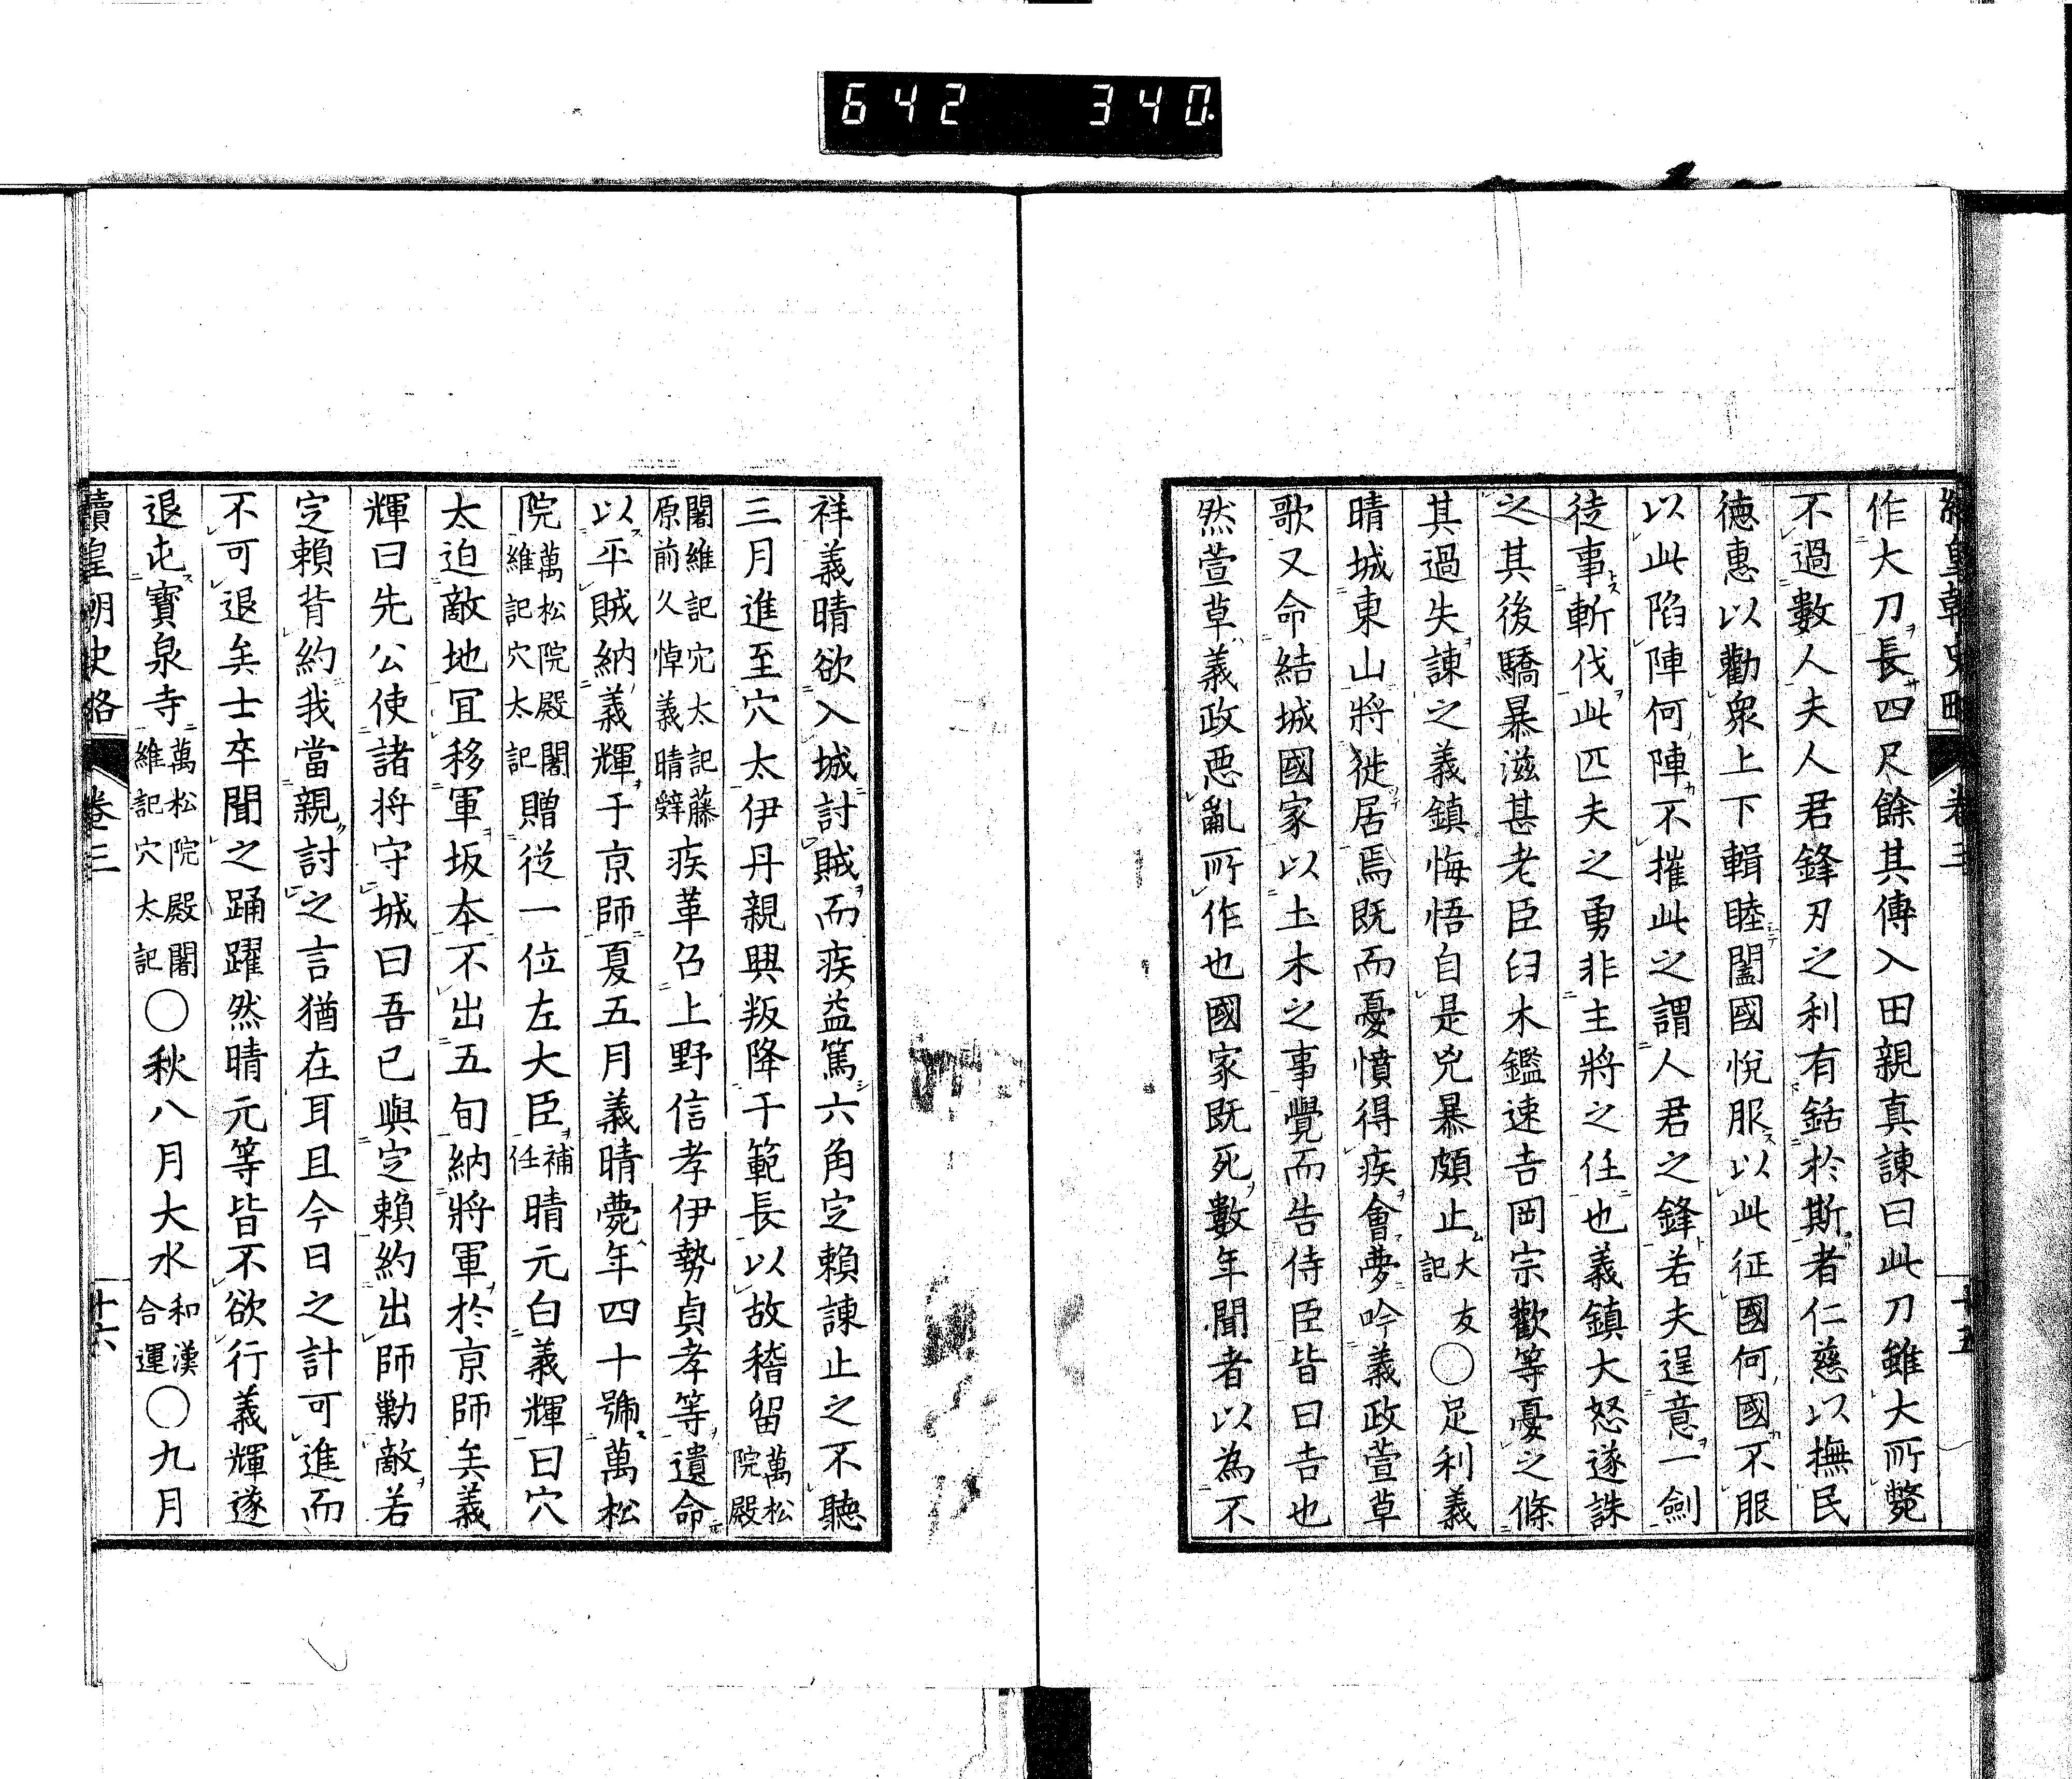 642 340
續皇朝史略 卷三 十五
作大刀長四尺餘其傳入田親真諫曰此刀雖大所斃
不過數人夫人君鋒刃之利有銛於斯者仁慈以撫民
德惠以勸衆上下輯睦闔國悅服以此征國何國不服
以此陷陣何陣不摧此之謂人君之鋒若夫逞意一劍
徒事斬伐此匹夫之勇非主將之任也義鎮大怒遂誅
之其後驕暴滋甚老臣臼木鑑速吉岡宗歡等憂之條
其過失諫之義鎮悔悟自是兇暴頗止大友記〇足利義
晴城東山將徙居焉既而憂憤得疾會夢吟義政萱草
歌又命結城國家以土木之事覺而告侍臣皆曰吉也
然萱草義政惡亂所作也國家既死數年聞者以為不
祥義晴欲入城討賊而疾益篤六角定賴諫止之不聽
三月進至穴太伊丹親興叛降于範長以故稽留萬松院殿
闍維記穴太記藤原前久悼義晴辭疾革召上野信孝伊勢貞孝等遺命
以平賊納義輝于京師夏五月義晴薨年四十號萬松
院萬松院殿闍維記穴太記贈從一位左大臣補任晴元白義輝曰穴
太迫敵地宜移軍坂本不出五旬納將軍於京師矣義
輝曰先公使諸將守城曰吾已與定賴約出師勦敵若
定賴背約我當親討之言猶在耳且今日之計可進而
不可退矣士卒聞之踊躍然晴元等皆不欲行義輝遂
退屯寶泉寺萬松院殿闍維記穴太記〇秋八月大水和漢合運〇九月
續皇朝史略 卷三 十六